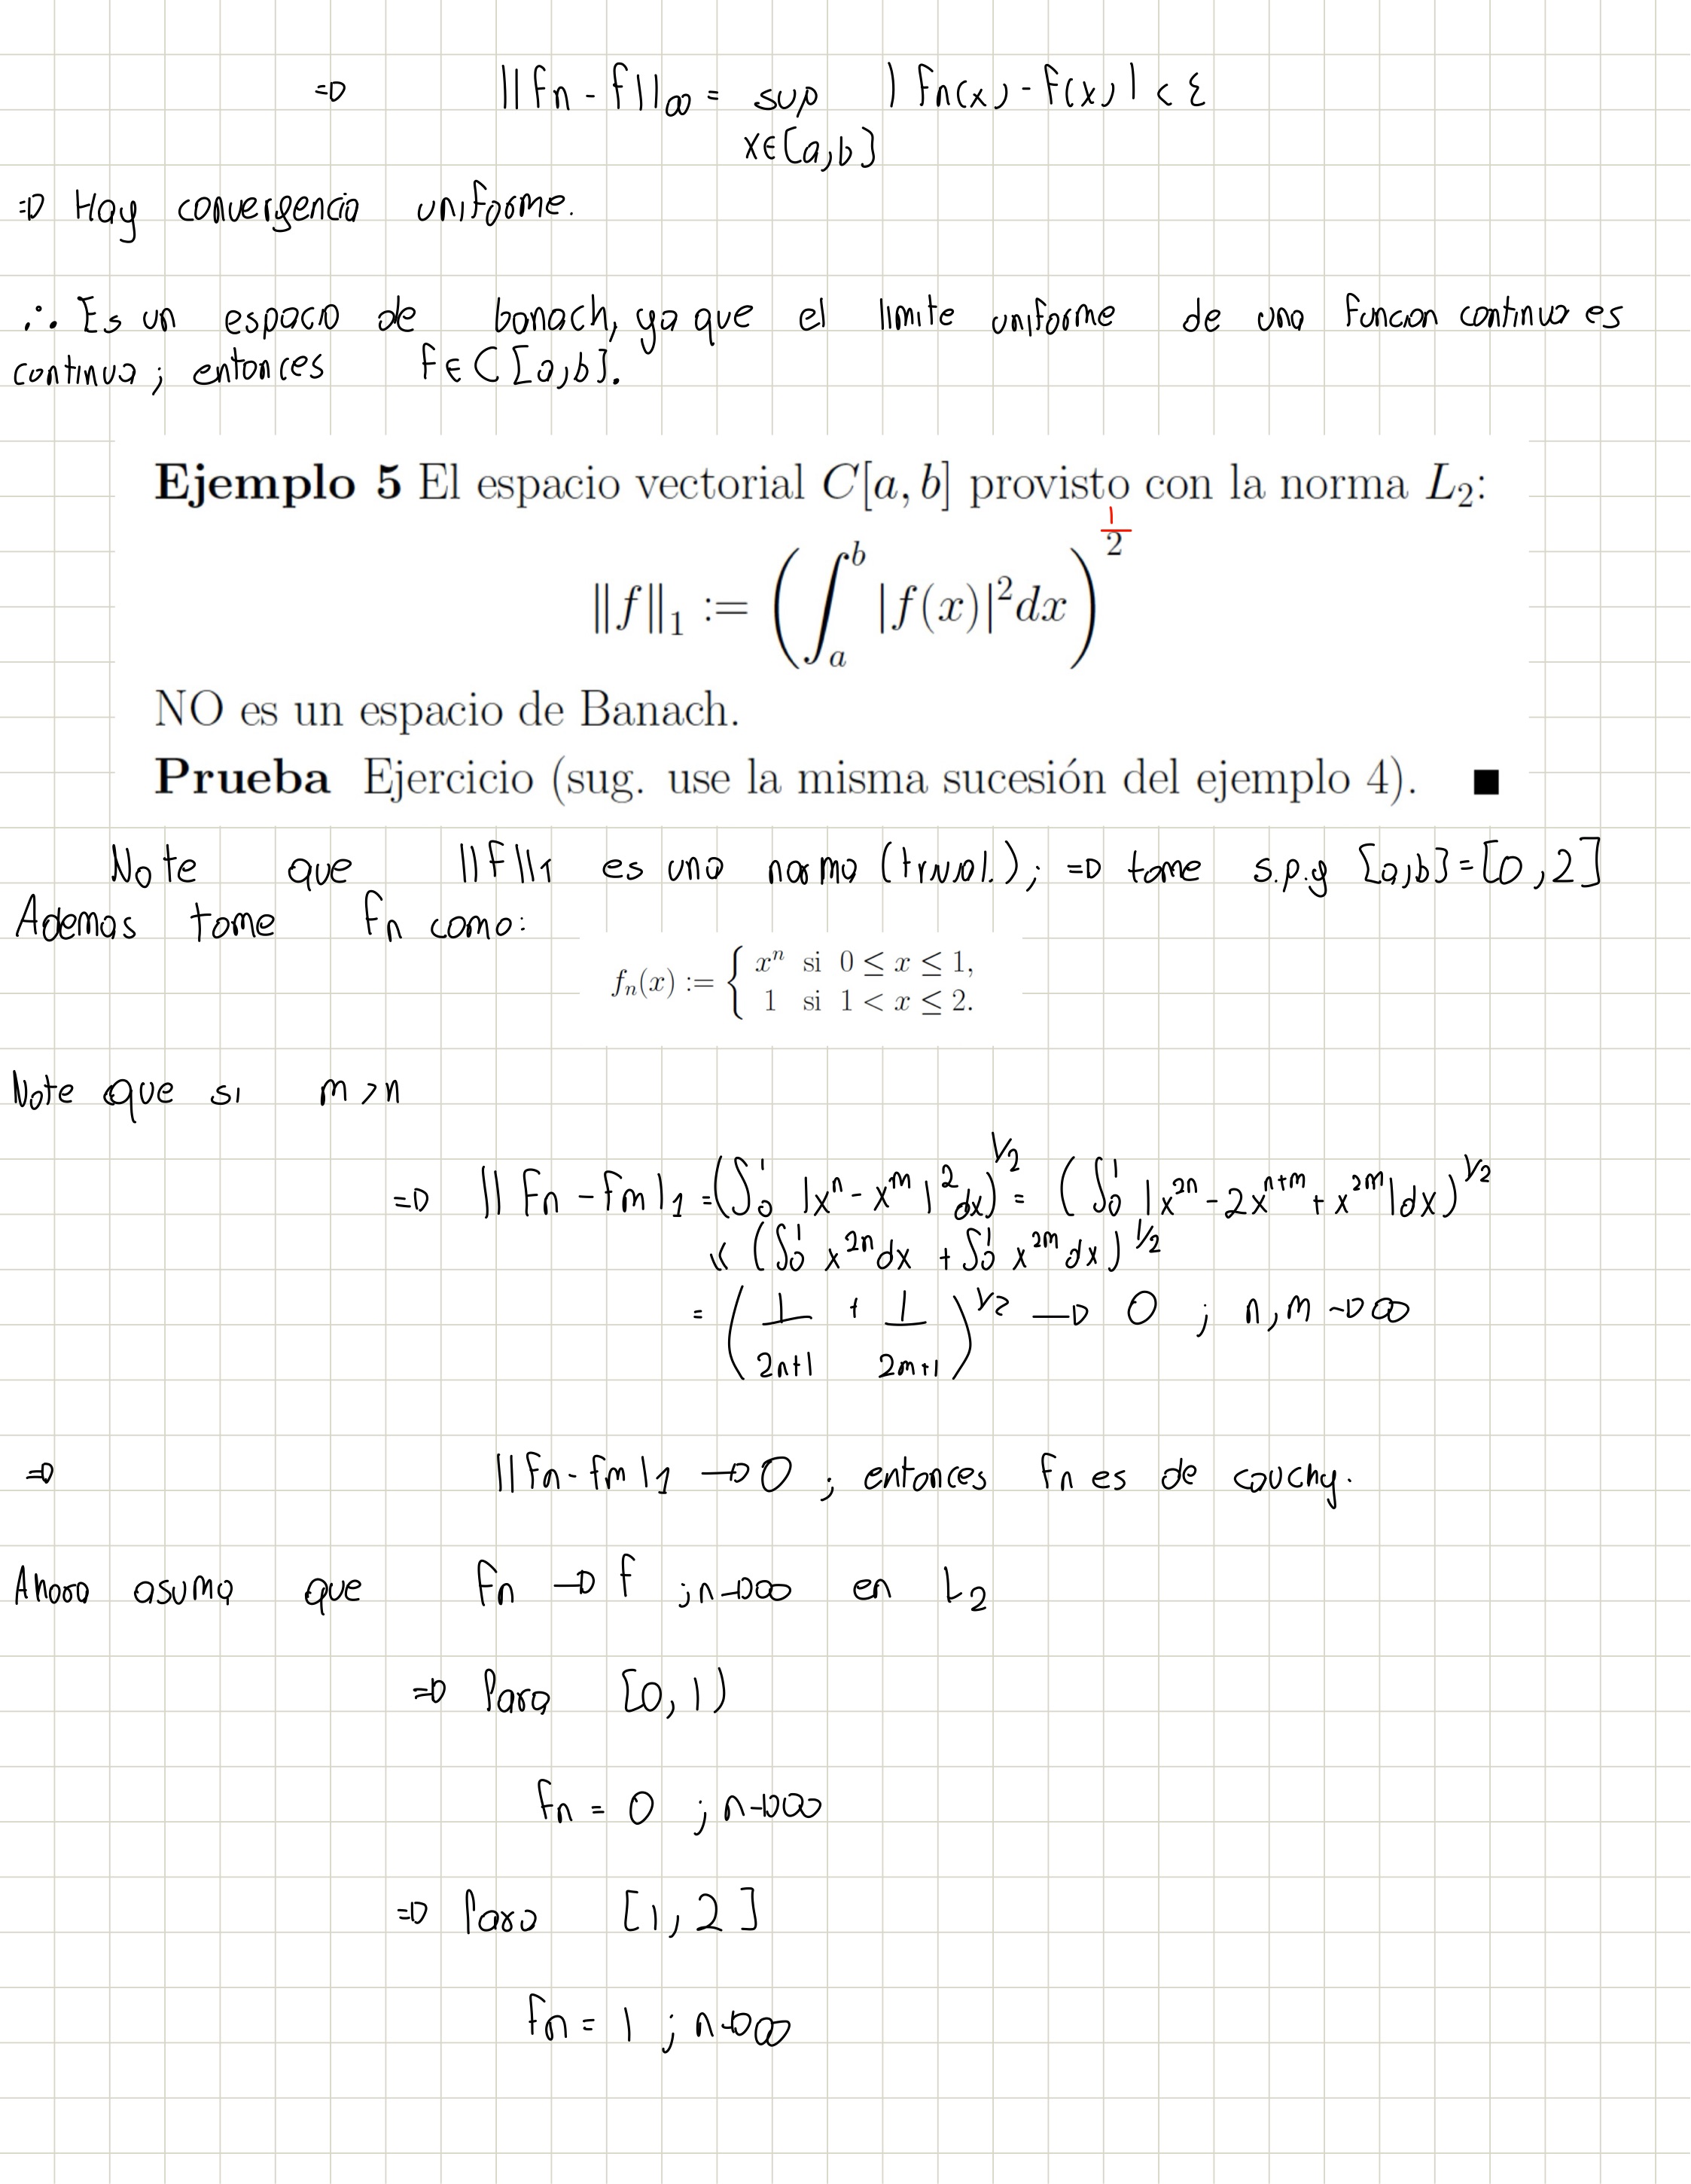 ⇒ ||fn - f||∞ = sup | fn(x) - f(x) | < ε
x∈[a,b]
⇒ Hay convergencia uniforme.
∴ Es un espacio de banach, ya que el limite uniforme de una funcion continua es
continua; entonces f ∈ C[a,b].
Ejemplo 5 El espacio vectorial C[a, b] provisto con la norma L₂:
‖f‖₁ := (∫ₐᵇ |f(x)|²dx)^(1/2)
NO es un espacio de Banach.
Prueba Ejercicio (sug. use la misma sucesión del ejemplo 4). ■
Note que ||f||1 es una norma (trivial.); ⇒ tome s.p.g [a,b]=[0,2]
Ademas tome fn como:
fₙ(x) := { xⁿ si 0 ≤ x ≤ 1,
1 si 1 < x ≤ 2.
Note que si m > n
⇒ || fn - fm |1 = (∫₀¹ |xⁿ - xᵐ|² dx)^(1/2) = (∫₀¹ |x²ⁿ - 2xⁿ⁺ᵐ + x²ᵐ| dx)^(1/2)
≤ (∫₀¹ x²ⁿ dx + ∫₀¹ x²ᵐ dx)^(1/2)
= (1/(2n+1) + 1/(2m+1))^(1/2) → 0 ; n,m → ∞
⇒ ||fn - fm |1 → 0 ; entonces fn es de cauchy.
Ahora asuma que fn → f ; n→∞ en L2
⇒ Para [0,1)
fn = 0 ; n→∞
⇒ Para [1,2]
fn = 1 ; n→∞